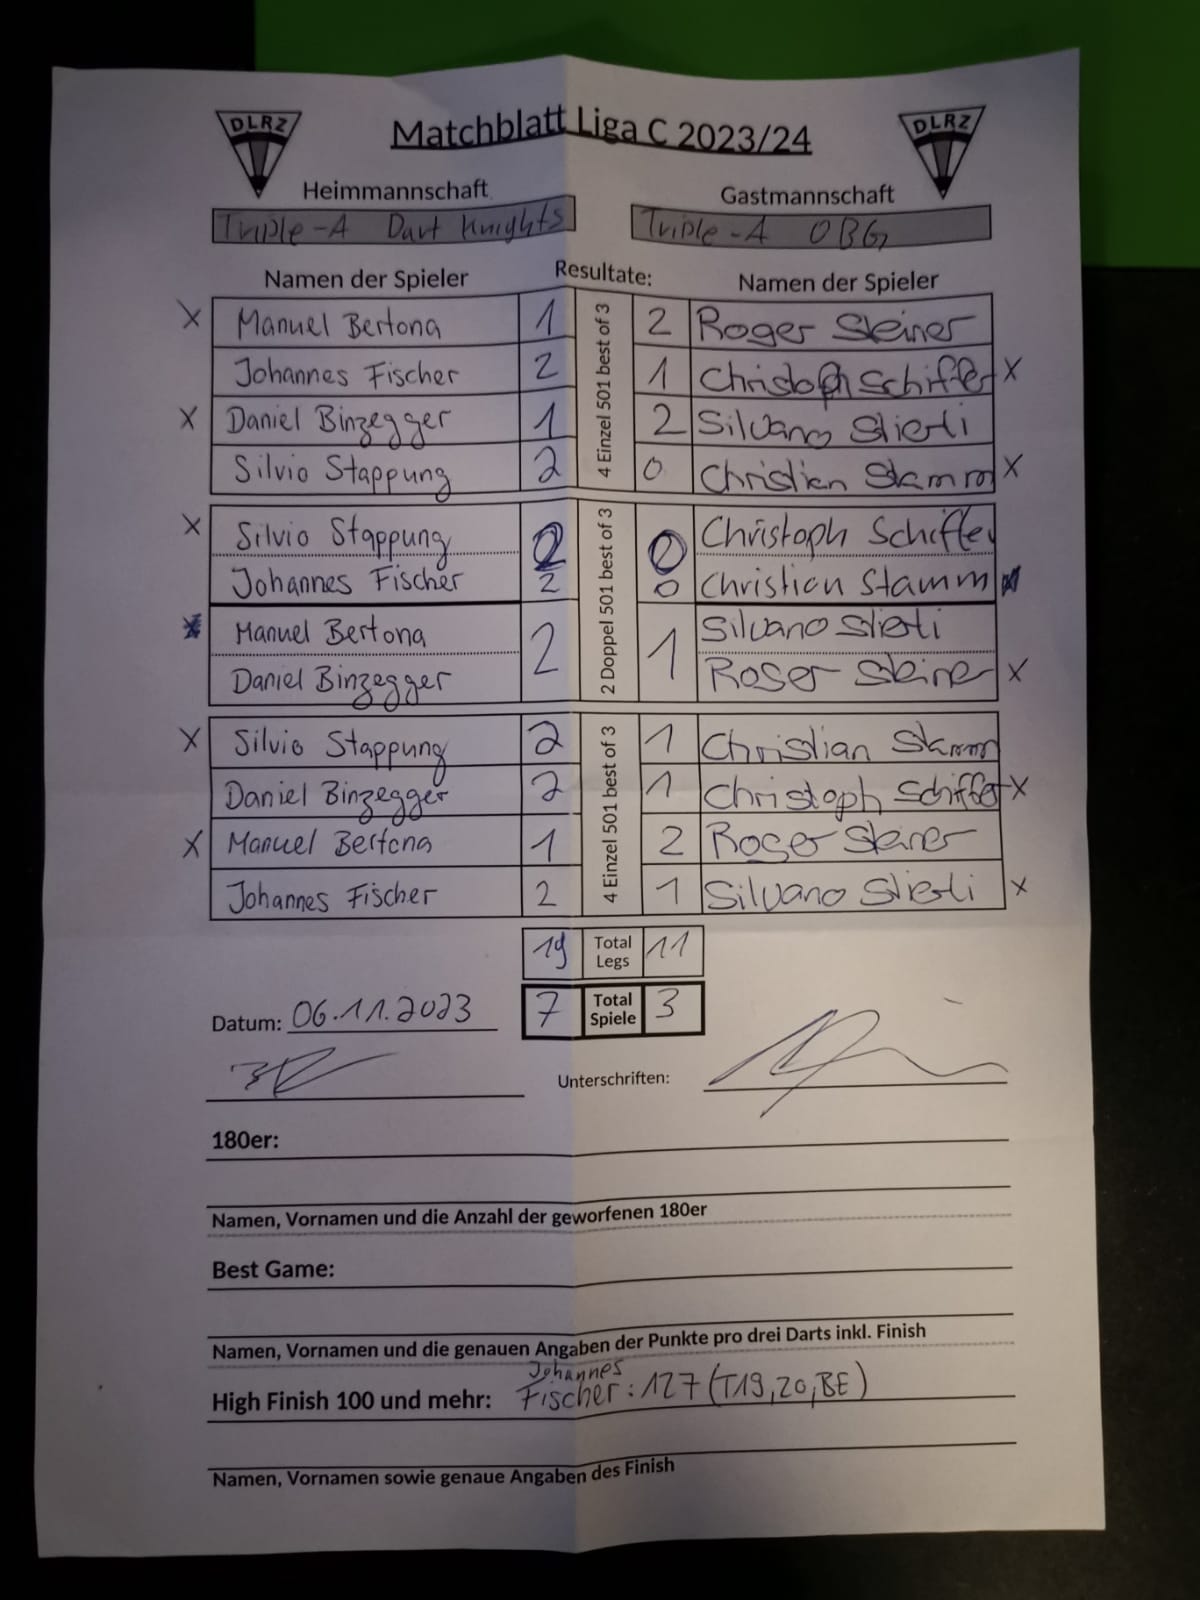 DLRZ Matchblatt Liga C 2023/24 DLRZ
Heimmannschaft Gastmannschaft
Triple-A Dart Knights Triple-A OBG
Namen der Spieler Resultate: Namen der Spieler
4 Einzel 501 best of 3
X Manuel Bertona 1 2 Roger Steiner
Johannes Fischer 2 1 Christoph Schiffer X
X Daniel Binzegger 1 2 Silvano Stierli
Silvio Stappung 2 0 Christian Stamm X
2 Doppel 501 best of 3
X Silvio Stappung 2 0 Christoph Schiffer
Johannes Fischer 2 0 Christian Stamm
Manuel Bertona 2 1 Silvano Stierli
Daniel Binzegger Roger Steiner X
4 Einzel 501 best of 3
X Silvio Stappung 2 1 Christian Stamm
Daniel Binzegger 2 1 Christoph Schiffer X
X Manuel Bertona 1 2 Roger Steiner
Johannes Fischer 2 1 Silvano Stierli X
19 Total Legs 11
Datum: 06.11.2023 7 Total Spiele 3
Unterschriften:
180er:
Namen, Vornamen und die Anzahl der geworfenen 180er
Best Game:
Namen, Vornamen und die genauen Angaben der Punkte pro drei Darts inkl. Finish
Johannes
High Finish 100 und mehr: Fischer: 127 (T19, 20, BE)
Namen, Vornamen sowie genaue Angaben des Finish